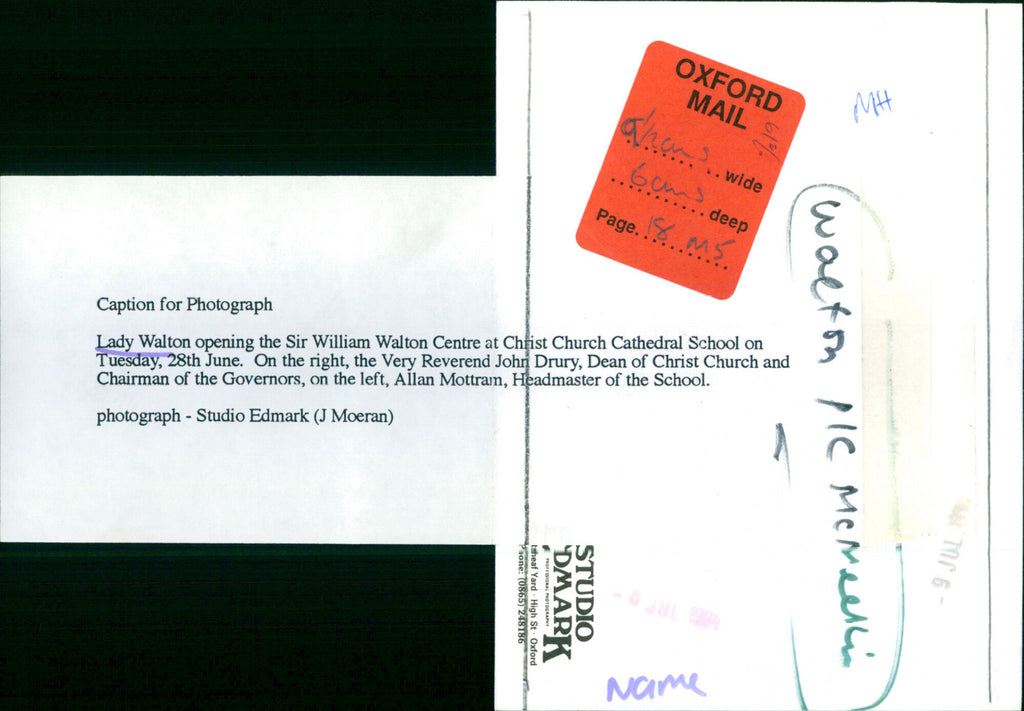 Caption for Photograph
Lady Walton opening the Sir William Walton Centre at Christ Church Cathedral School on
Tuesday, 28th June. On the right, the Very Reverend John Drury, Dean of Christ Church and
Chairman of the Governors, on the left, Allan Mottram, Headmaster of the School.
photograph - Studio Edmark (J Moeran)
OXFORD
MAIL
wide
6cms deep
Page 18 M5
MH
Walton PIC
STUDIO
DMARK
PROFESSIONAL PHOTOGRAPHY
heaf Yard · High St · Oxford
hone: (0865) 248186
- 6 JUL 1994
- 6 JUL 199
Name